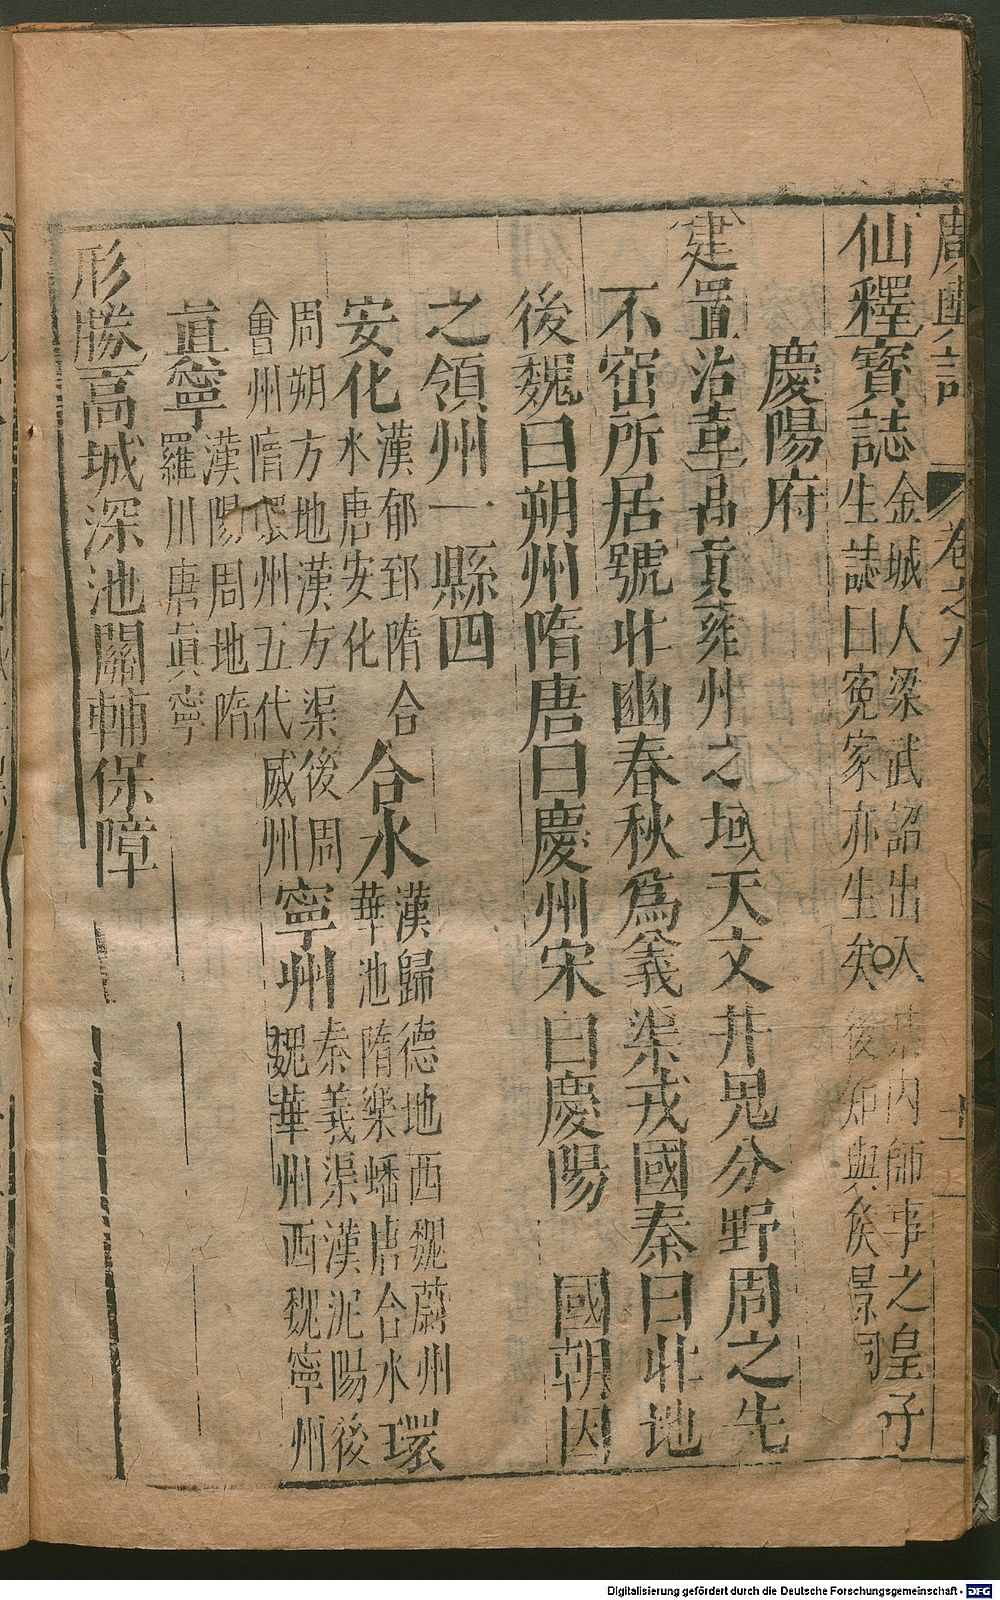 廣輿記 卷之九
仙釋寶誌 金城人梁武詔出入禁內師事之皇子
生誌曰寃家亦生矣後知與侯景同
慶陽府
建置沿革禹貢雍州之域天文井鬼分野周之先
不窋所居號北豳春秋爲義渠戎國秦曰北地
後魏曰朔州隋唐曰慶州宋曰慶陽 國朝因
之領州一縣四
安化 漢郁郅隋合水唐安化 合水 漢歸德地西魏蔚州華池隋樂蟠唐合水 環
周朔方地漢方渠後周會州隋環州五代威州 寧州 秦義渠漢泥陽後魏華州西魏寧州
眞寧 漢陽周地隋羅川唐眞寧
形勝高城深池關輔保障
Digitalisierung gefördert durch die Deutsche Forschungsgemeinschaft - DFG